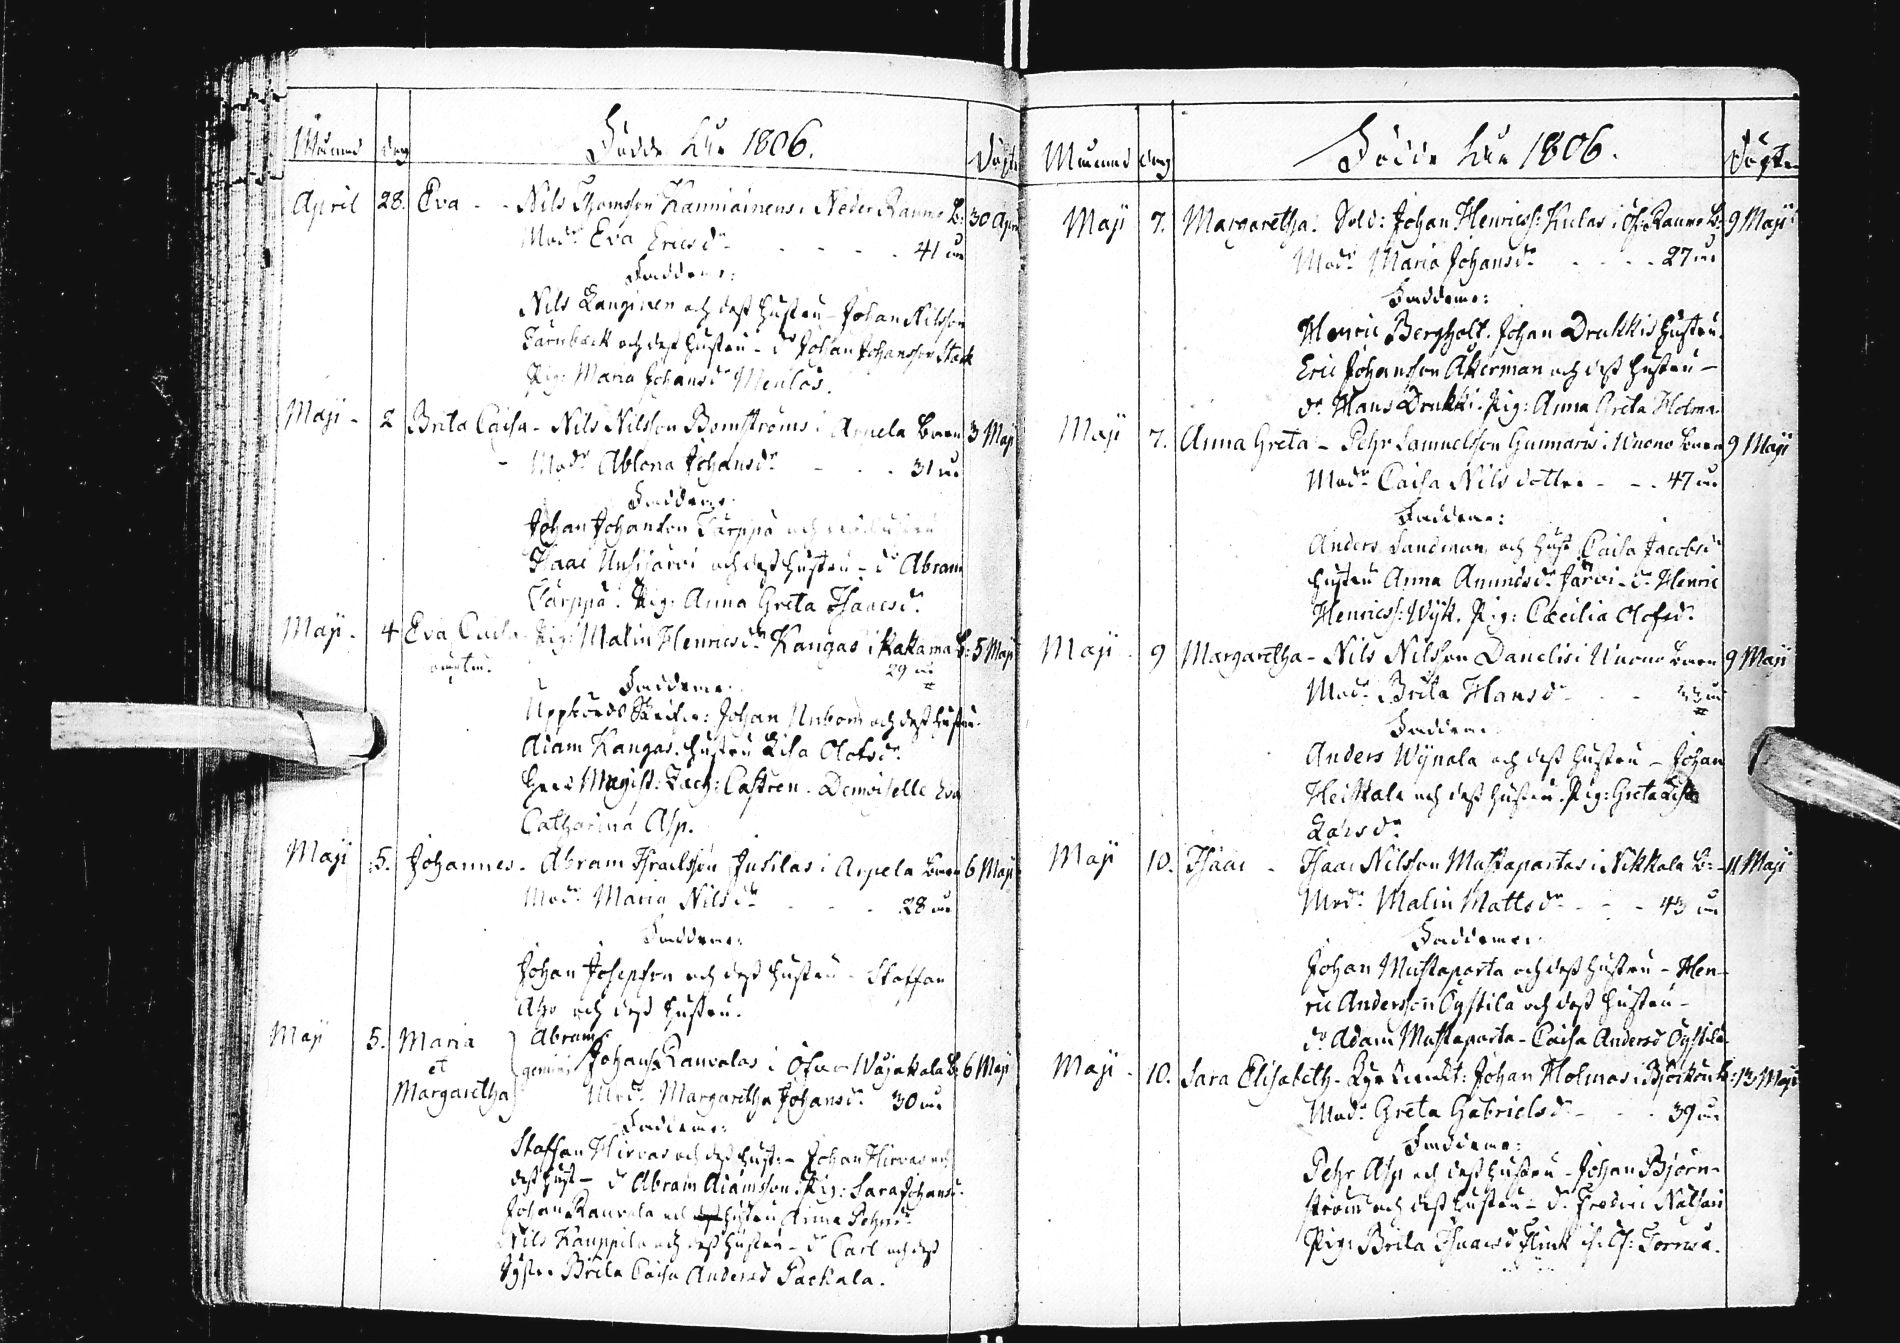 Månad dag Födde År 1806. Döpte
April 28. Eva - - Nils Thomsson Kanniainens i Neder Raumo B: 30 April
Mod:r Eva Ericsd:r - - - - 41 år
Faddrarne:
Nils Langinen och dess hustru - Johan Nilsson
Tärnbäck och dess hustru - d:r Johan Johansson Stack
Pig: Maria Johansd:r Meulas.
Maji - 2 Brita Caisa - Nils Nilsson Bomströms i Arpela barn 3 Maji
- Mod:r Ablona Johansd:r - - - 31 år
Faddrarne:
Johan Johansson Kärppä och
Isaac Uusijärvi och dess hustru - d:r Abram
Kärppä. Pig: Anna Greta Isaacsd:r
Maji - 4 Eva Caisa Pig: Malin Henricsd:r Kangas i Kakama B: 5 Maji
oägta. 29 år
Faddrarne:
Uppbörds Skrifv: Johan Unbom och dess hustru
Adam Kangas. hustru Lisa Olofsd:r
Herr Magist: Zach: Castren. Demoiselle Eva
Catharina Asp.
Maji 5. Johannes - Abram Israelsson Jusilas i Arpela barn 6 Maji
Mod:r Maria Nilsd:r - - - 28 år
Faddrarne:
Johan Josepsson och dess hustru - Staffan
Aho och dess hustru.
Maji 5. Maria Abram
et gemini Johans: Rauvalas i Öfver Wojakala B: 6 Maji
Margaretha Mod:r Margaretha Johansd:r 30 år
Faddrarne:
Staffan Hirvas och dess hust: - Johan Hirvas och
dess hust - d:r Abram Adamsson. Pig: Sara Johansd:
Johan Rauvala och hustru Anna Pehrsd:r
Nils Kauppila och dess hustru - d:r Carl och dess
Syster Brita Caisa Andersd Packala.
Månad dag Födde År 1806. Döpte
Maji 7. Margaretha. Sold: Johan Henricss: Kulas i Öf: Raumo B: 9 Maji
Mod:r Maria Johansd:r - - - 27 år
Faddrarne:
Henric Bergholt. Johan Drukkis hustru.
Eric Johansson Åkerman och dess hustru -
d:r Hans Drukki. Pig: Anna Greta Holma.
Maji 7. Anna Greta - Pehr Samuelsson Gunnaris i Wuono barn 9 Maji
Mod:r Caisa Nilsdotter - - 47 år
Faddrarne:
Anders Sandman och hust Caisa Jacobsd:r
hustru Anna Amundsd:r Järvi - d:r Henric
Henricss: Wyk. Pig: Cæcilia Olofsd:r
Maji - 9 Margaretha - Nils Nilsson Danelis i Wuono barn 9 Maji
Mod:r Brita Hansd:r - - 33 år
Faddrarne:
Anders Wynola och dess hustru - Johan
Heikkala och dess hustru. Pig: Greta Lisa
Larsd:r
Maji 10. Isaac - Isaac Nilsson Mustapartas i Nikkala B: - 11 Maji
Mod:r Malin Mattsd:r - - 43 år
Faddrarne:
Johan Mustaparta och dess hustru - Hen-
ric Andersson Öystilä och dess hustru -
d:r Adam Mustaparta - Caisa Andersd Öystilä
Maji - 10. Sara Elisabeth - Johan Holmas i Björkön B: 13 Maji
Mod:r Greta Gabrielsd:r - - - 39 år
Faddrarne:
Pehr Asp och dess hustru - Johan Björn-
ström och dess hustru - d:r Fredric
Pig: Brita Isaacsd Flink Torneå.